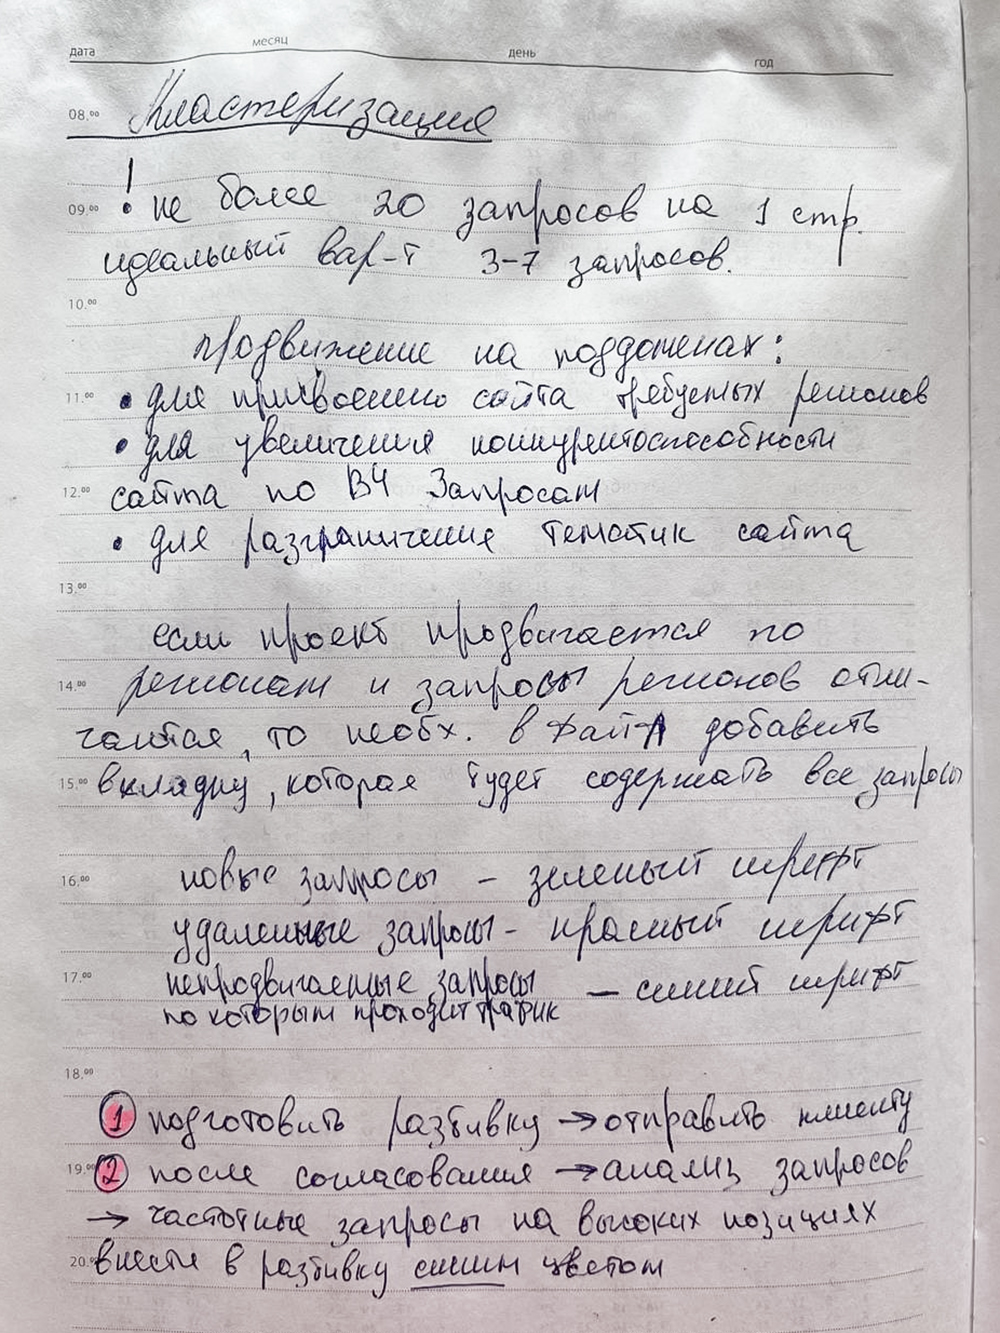 дата месяц день год
08.00 Кластеризация
!
09.00 не более 20 запросов на 1 стр.
идеальный вар-т 3-7 запросов.
10.00
продвижение на поддоменах:
11.00 • для присвоению сайта требуемых регионов
• для увеличения конкурентоспособности
12.00 сайта по ВЧ Запросам
• для разграничения тематик сайта
13.00
если проект продвигается по
14.00 регионам и запросы регионов отли-
чаются, то необх. в файл добавить
15.00 вкладку, которая будет содержать все запросы
16.00 новые запросы – зеленый шрифт
удаленные запросы - красный шрифт
17.00 непродвигаемые запросы — синий шрифт
по которым проходит трафик
18.00
1 подготовить разбивку → отправить клиенту
19.00 2 после согласования → анализ запросов
→ частотные запросы на высоких позициях
20.00 внести в разбивку синим цветом